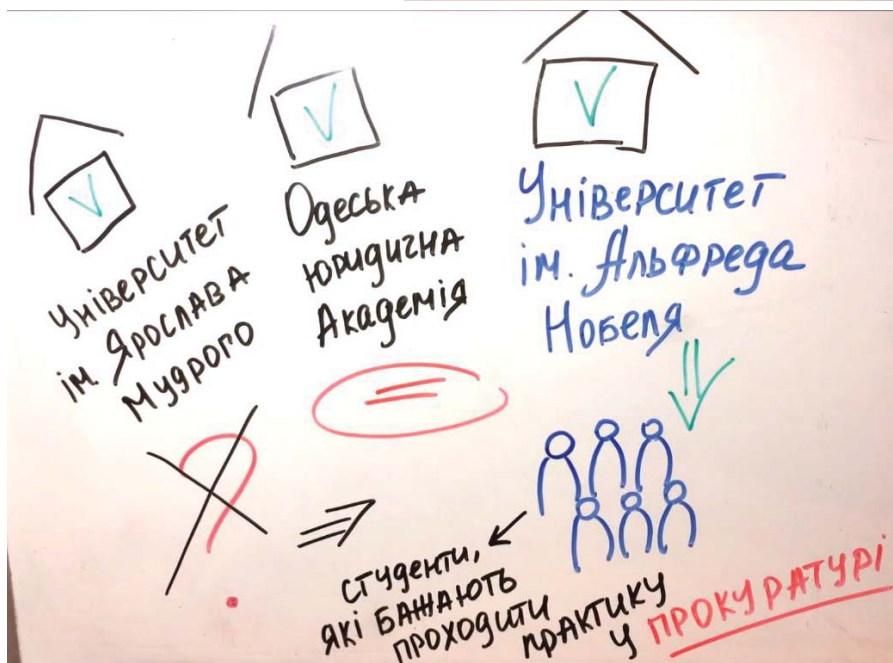 Університет
ім. Ярослава
Мудрого
Одеська
юридична
Академія
Університет
ім. Альфреда
Нобеля
?
студенти,
які бажають
проходити практику
у прокуратурі